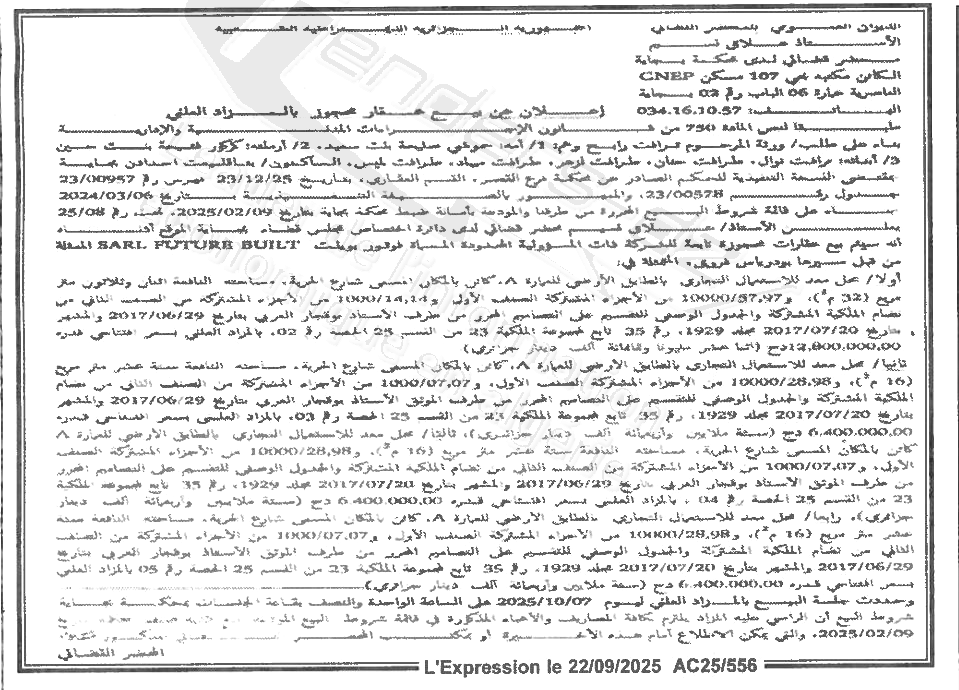 الديوان العمومي للمحضر القضائي
الجمهورية الجزائرية الديمقراطية الشعبية
الأستاذ عـلاق نسيم
محضر قضائي لدى محكمة بجاية
الكائن مكتبه بحي 107 مسكن CNEP
الناصرية عمارة 06 الباب رقم 02 بجاية
الهاتف: 034.16.10.57
إعـلان عن بيع عقار محجوز بالمزاد العلني
طبقا لنص المادة 750 من قانون الإجراءات المدنية والإدارية
بناء على طلب/ ورثة المرحوم رابح وهم: 1/ أمه: صليحة بنت سعيد، 2/ أرملته: بنت حسين
3/ أبنائه: نوال، حنان، لزهر، ميليسا، الساكنون/
بمقتضى النسخة التنفيذية للحكم الصادر عن محكمة فرع القصر، القسم العقاري، بتاريخ 23/12/25 فهرس رقم 23/00957
جدول رقم 23/00578، والممهور بالصيغة التنفيذية بتاريخ 2024/03/06
بناء على قائمة شروط البيع المحررة من طرفنا والمودعة بأمانة ضبط محكمة بجاية بتاريخ 2025/02/09 تحت رقم 25/08
يعلن الأستاذ/ عـلاق نسيم محضر قضائي لدى دائرة اختصاص مجلس قضاء بجاية الموقع أدناه
أنه سيتم بيع عقارات محجوزة تابعة للشركة ذات المسؤولية المحدودة المسماة فوتور بويلت SARL FUTURE BUILT الممثلة
من قبل مسيرها بودرياس فروق، المتمثلة في:
أولا/ محل معد للاستعمال التجاري بالطابق الأرضي للعمارة A، كائن بالمكان المسمى شارع الحرية، مساحته النافعة اثنان وثلاثون متر
مربع (32 م²)، و10000/57,97 من الأجزاء المشتركة الصنف الأول و1000/14,14 من الأجزاء المشتركة من الصنف الثاني من
نظام الملكية المشتركة والجدول الوصفي للتقسيم على التصاميم المحرر من طرف الأستاذ بوقجار العربي بتاريخ 2017/06/29 والمشهر
بتاريخ 2017/07/20 مجلد 1929، رقم 35 تابع لمجموعة الملكية 23 من القسم 25 الحصة رقم 02، بالمزاد العلني بسعر افتتاحي قدره
12.800.000,00دج (اثنا عشر مليونا وثمانمائة ألف دينار جزائري)
ثانيا/ محل معد للاستعمال التجاري بالطابق الأرضي للعمارة A، كائن بالمكان المسمى شارع الحرية، مساحته النافعة ستة عشر متر مربع
(16 م²)، و10000/28,98 من الأجزاء المشتركة الصنف الأول، و1000/07,07 من الأجزاء المشتركة من الصنف الثاني من نظام
الملكية المشتركة والجدول الوصفي للتقسيم على التصاميم المحرر من طرف الموثق الأستاذ بوقجار العربي بتاريخ 2017/06/29 والمشهر
بتاريخ 2017/07/20 مجلد 1929، رقم 35 تابع لمجموعة الملكية 23 من القسم 25 الحصة رقم 03، بالمزاد العلني بسعر افتتاحي قدره
6.400.000,00 دج (ستة ملايين وأربعمائة ألف دينار جزائري)، ثالثا/ محل معد للاستعمال التجاري بالطابق الأرضي للعمارة A
كائن بالمكان المسمى شارع الحرية، مساحته النافعة ستة عشر متر مربع (16 م²)، و10000/28,98 من الأجزاء المشتركة الصنف
الأول، و1000/07,07 من الأجزاء المشتركة من الصنف الثاني من نظام الملكية المشتركة والجدول الوصفي للتقسيم على التصاميم المحرر
من طرف الموثق الأستاذ بوقجار العربي بتاريخ 2017/06/29 والمشهر بتاريخ 2017/07/20 مجلد 1929، رقم 35 تابع لمجموعة الملكية
23 من القسم 25 الحصة رقم 04، بالمزاد العلني بسعر افتتاحي قدره 6.400.000,00 دج (ستة ملايين وأربعمائة ألف دينار
جزائري)، رابعا/ محل معد للاستعمال التجاري بالطابق الأرضي للعمارة A، كائن بالمكان المسمى شارع الحرية، مساحته النافعة ستة
عشر متر مربع (16 م²)، و10000/28,98 من الأجزاء المشتركة الصنف الأول، و1000/07,07 من الأجزاء المشتركة من الصنف
الثاني من نظام الملكية المشتركة والجدول الوصفي للتقسيم على التصاميم المحرر من طرف الموثق الأستاذ بوقجار العربي بتاريخ
2017/06/29 والمشهر بتاريخ 2017/07/20 مجلد 1929، رقم 35 تابع لمجموعة الملكية 23 من القسم 25 الحصة رقم 05 بالمزاد العلني
بسعر افتتاحي قدره 6.400.000,00 دج (ستة ملايين وأربعمائة ألف دينار جزائري)
وحددت جلسة البيع بالمزاد العلني ليوم 2025/10/07 على الساعة الواحدة والنصف بقاعة الجلسات بمحكمة بجاية
شروط البيع أن الراسي عليه المزاد يلتزم بكافة المصاريف والأعباء المذكورة في قائمة شروط البيع المودعة
2025/02/09، والتي يمكن الاطلاع أمام هذه الأخيرة أو بمكتب المحضر
المحضر القضائي
L'Expression le 22/09/2025 AC25/556